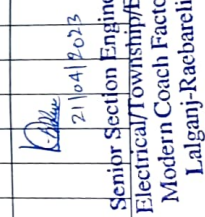 21/04/2023
Senior Section Engine
Electrical/Township/
Modern Coach Facto
Lalganj-Raebareli